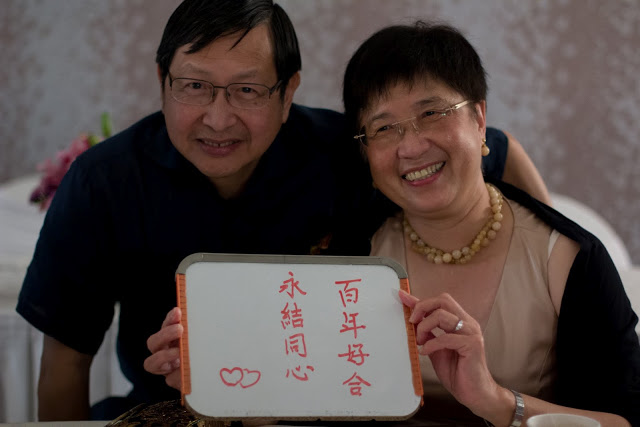 百年好合
永結同心